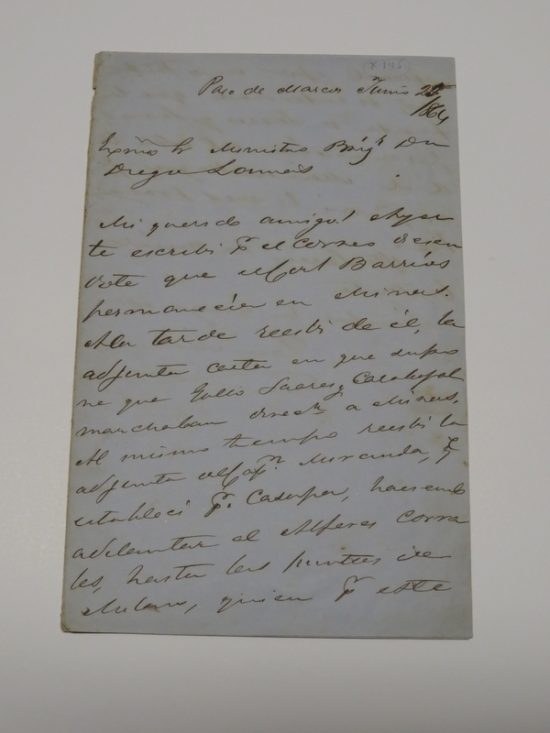 Paso de Marcos Junio 25
/1864
Exmo Sr Ministro Brigr Dn
Diego Lamas
Mi querido amigo! Ayer
te escribi pr el correo disen
dote que el Corl Barrios
permanecia en Minas.
A la tarde recibi de él, la
adjunta carta en que supo
ne que Gollo Suares y Carabajal
marchaban directe a Minas.
Al mismo tiempo recibi la
adjunta del Capn Miranda, q
estableci pr Casupa, haciendo
adelantar el Alferes Corra
les, hasta las puntas de
, quien pr este